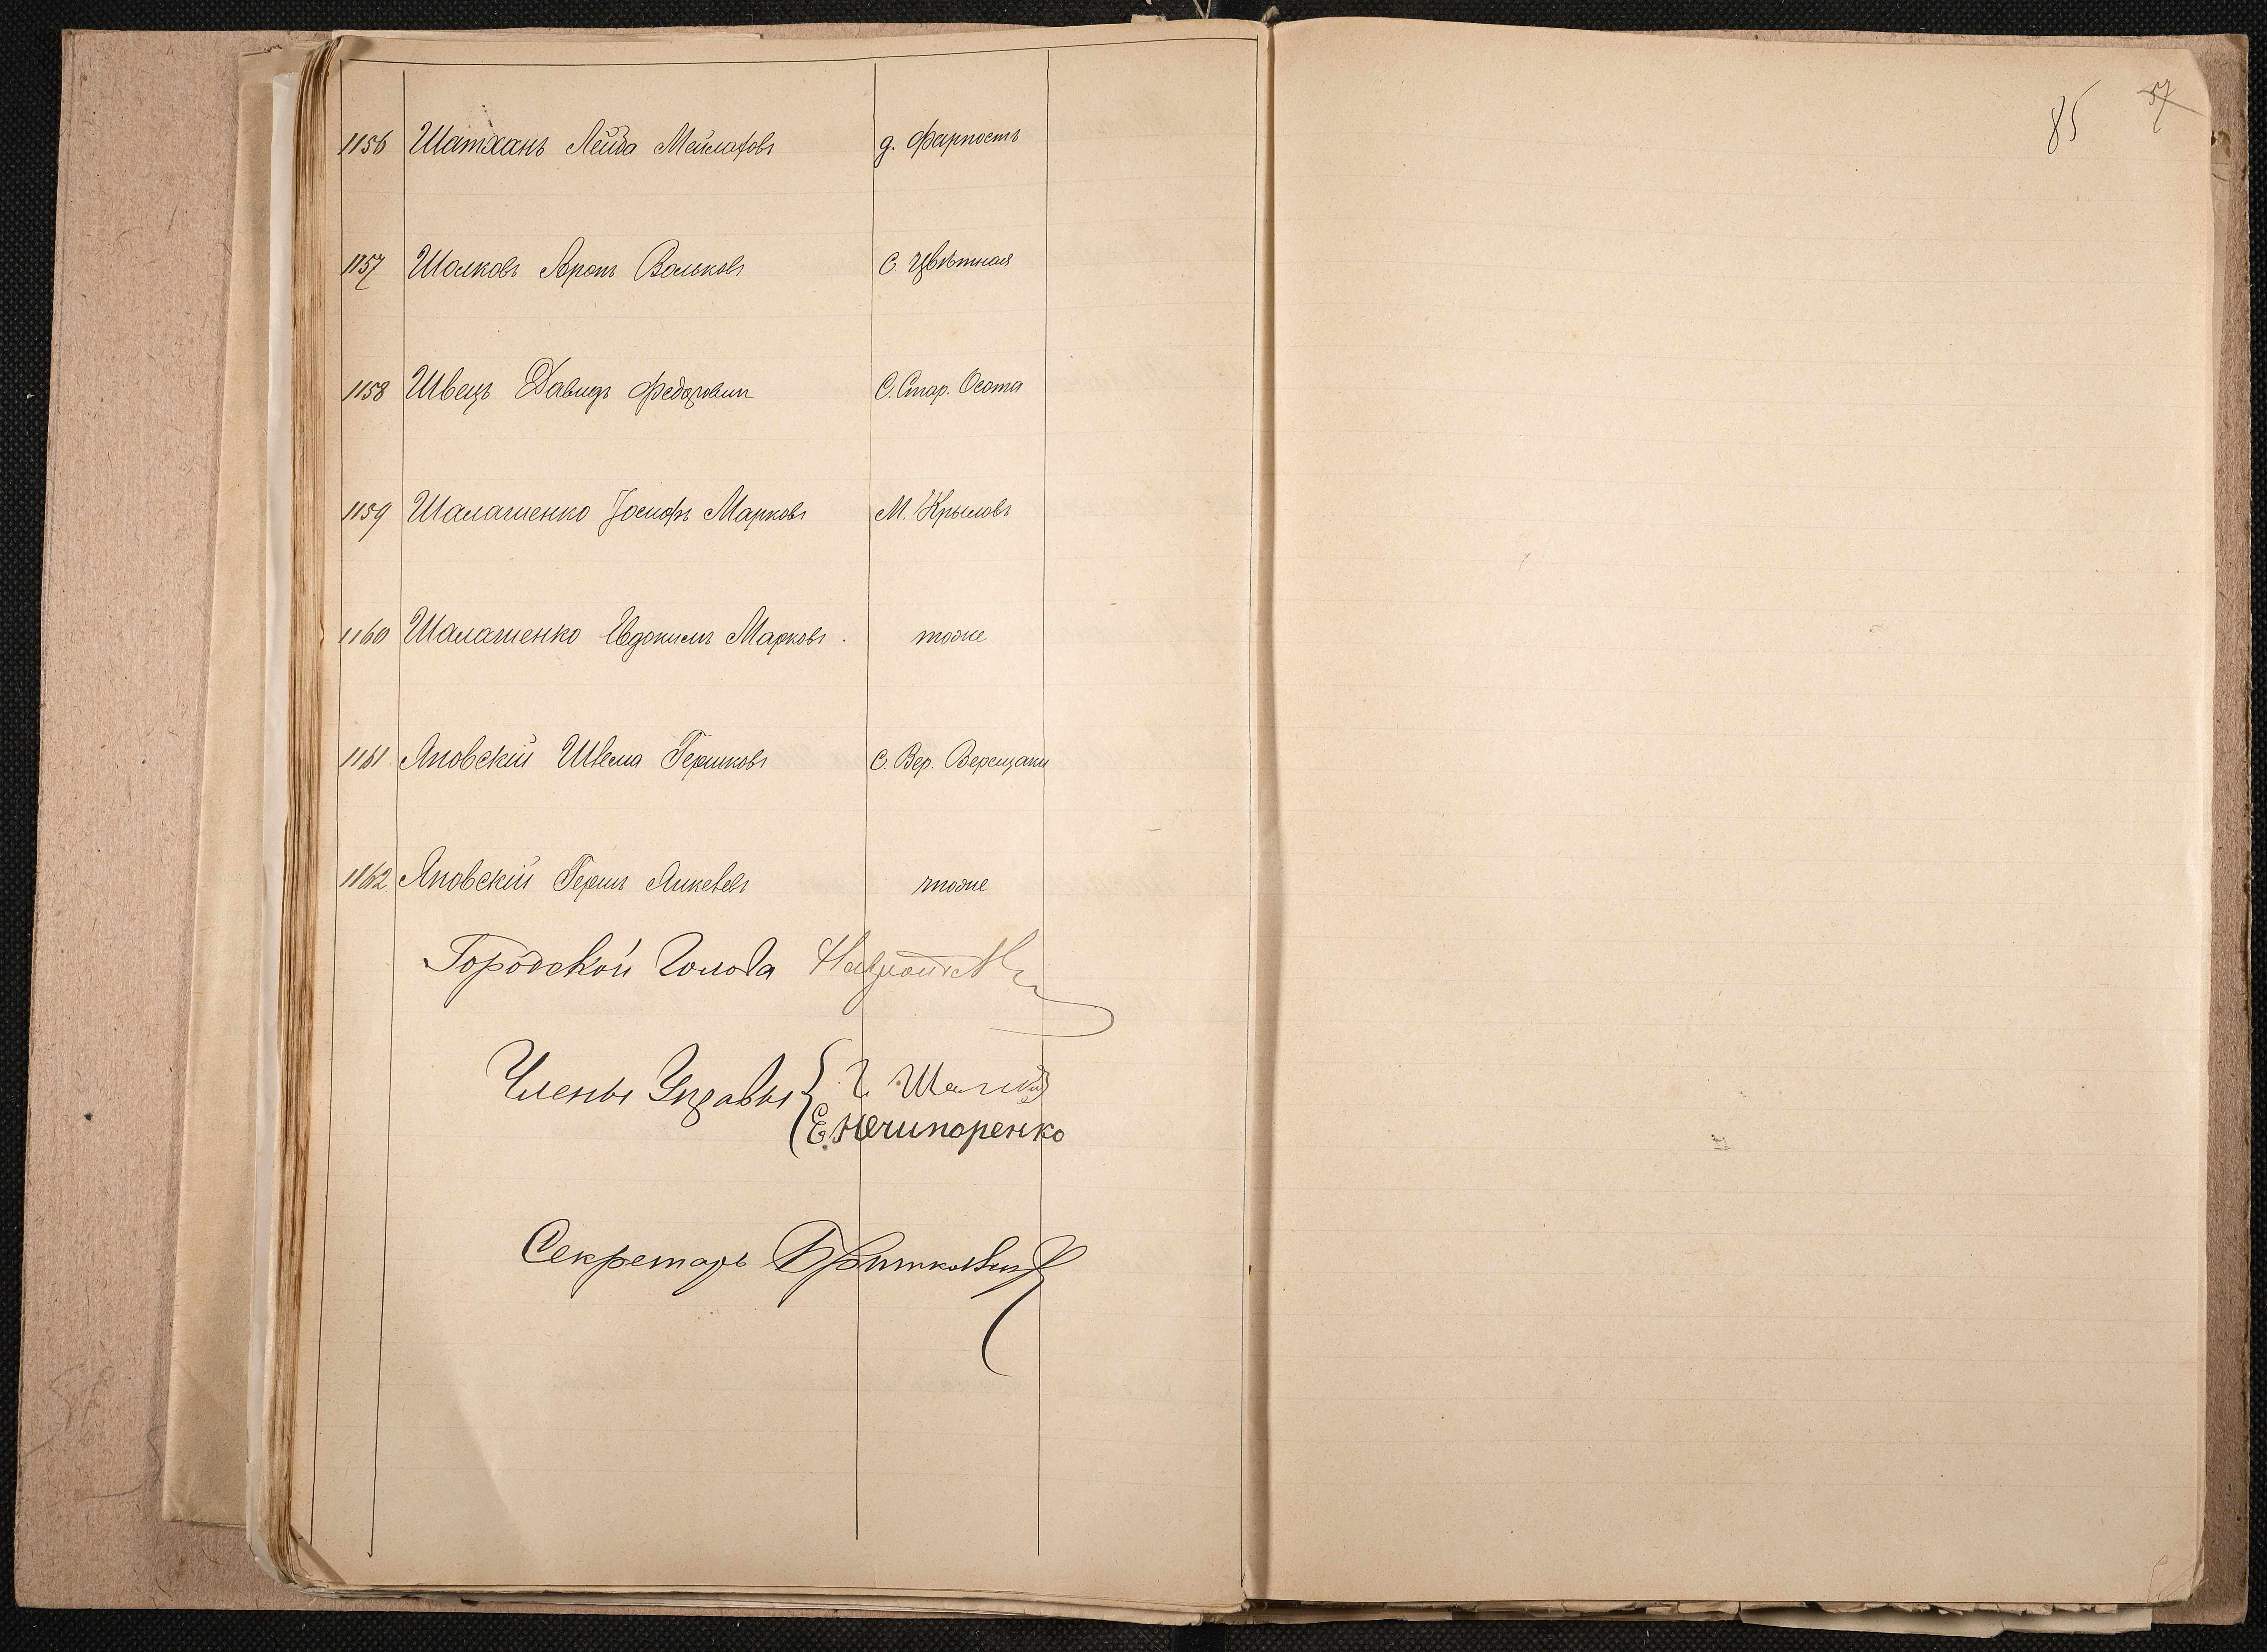 1156 Шатханъ Лейба Мейлаховъ д. Фарпостъ
1157 Шолковъ Аронъ Вольковъ С. Цвѣтная
1158 Швецъ Давидъ Федоровичъ С. Стар. Осота
1159 Шалашенко Іосифъ Марковъ М. Крыловъ
1160 Шалашенко Евдокимъ Марковъ. тоже
1161 Яновскій Шлема Гершковъ С. Вер. Верещаки
1162 Яновскій Гершъ Янкелевъ тоже
Городской Голова
Члены Управы
Е. Нечипоренко
Секретарь
85 57